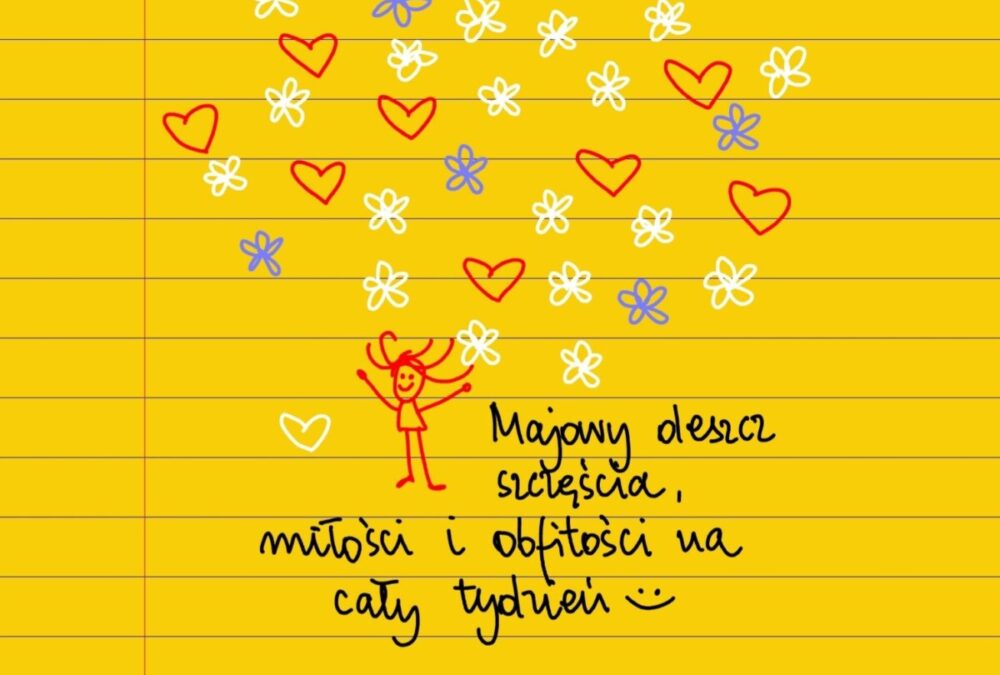 Majowy deszcz
szczęścia,
miłości i obfitości na
cały tydzień